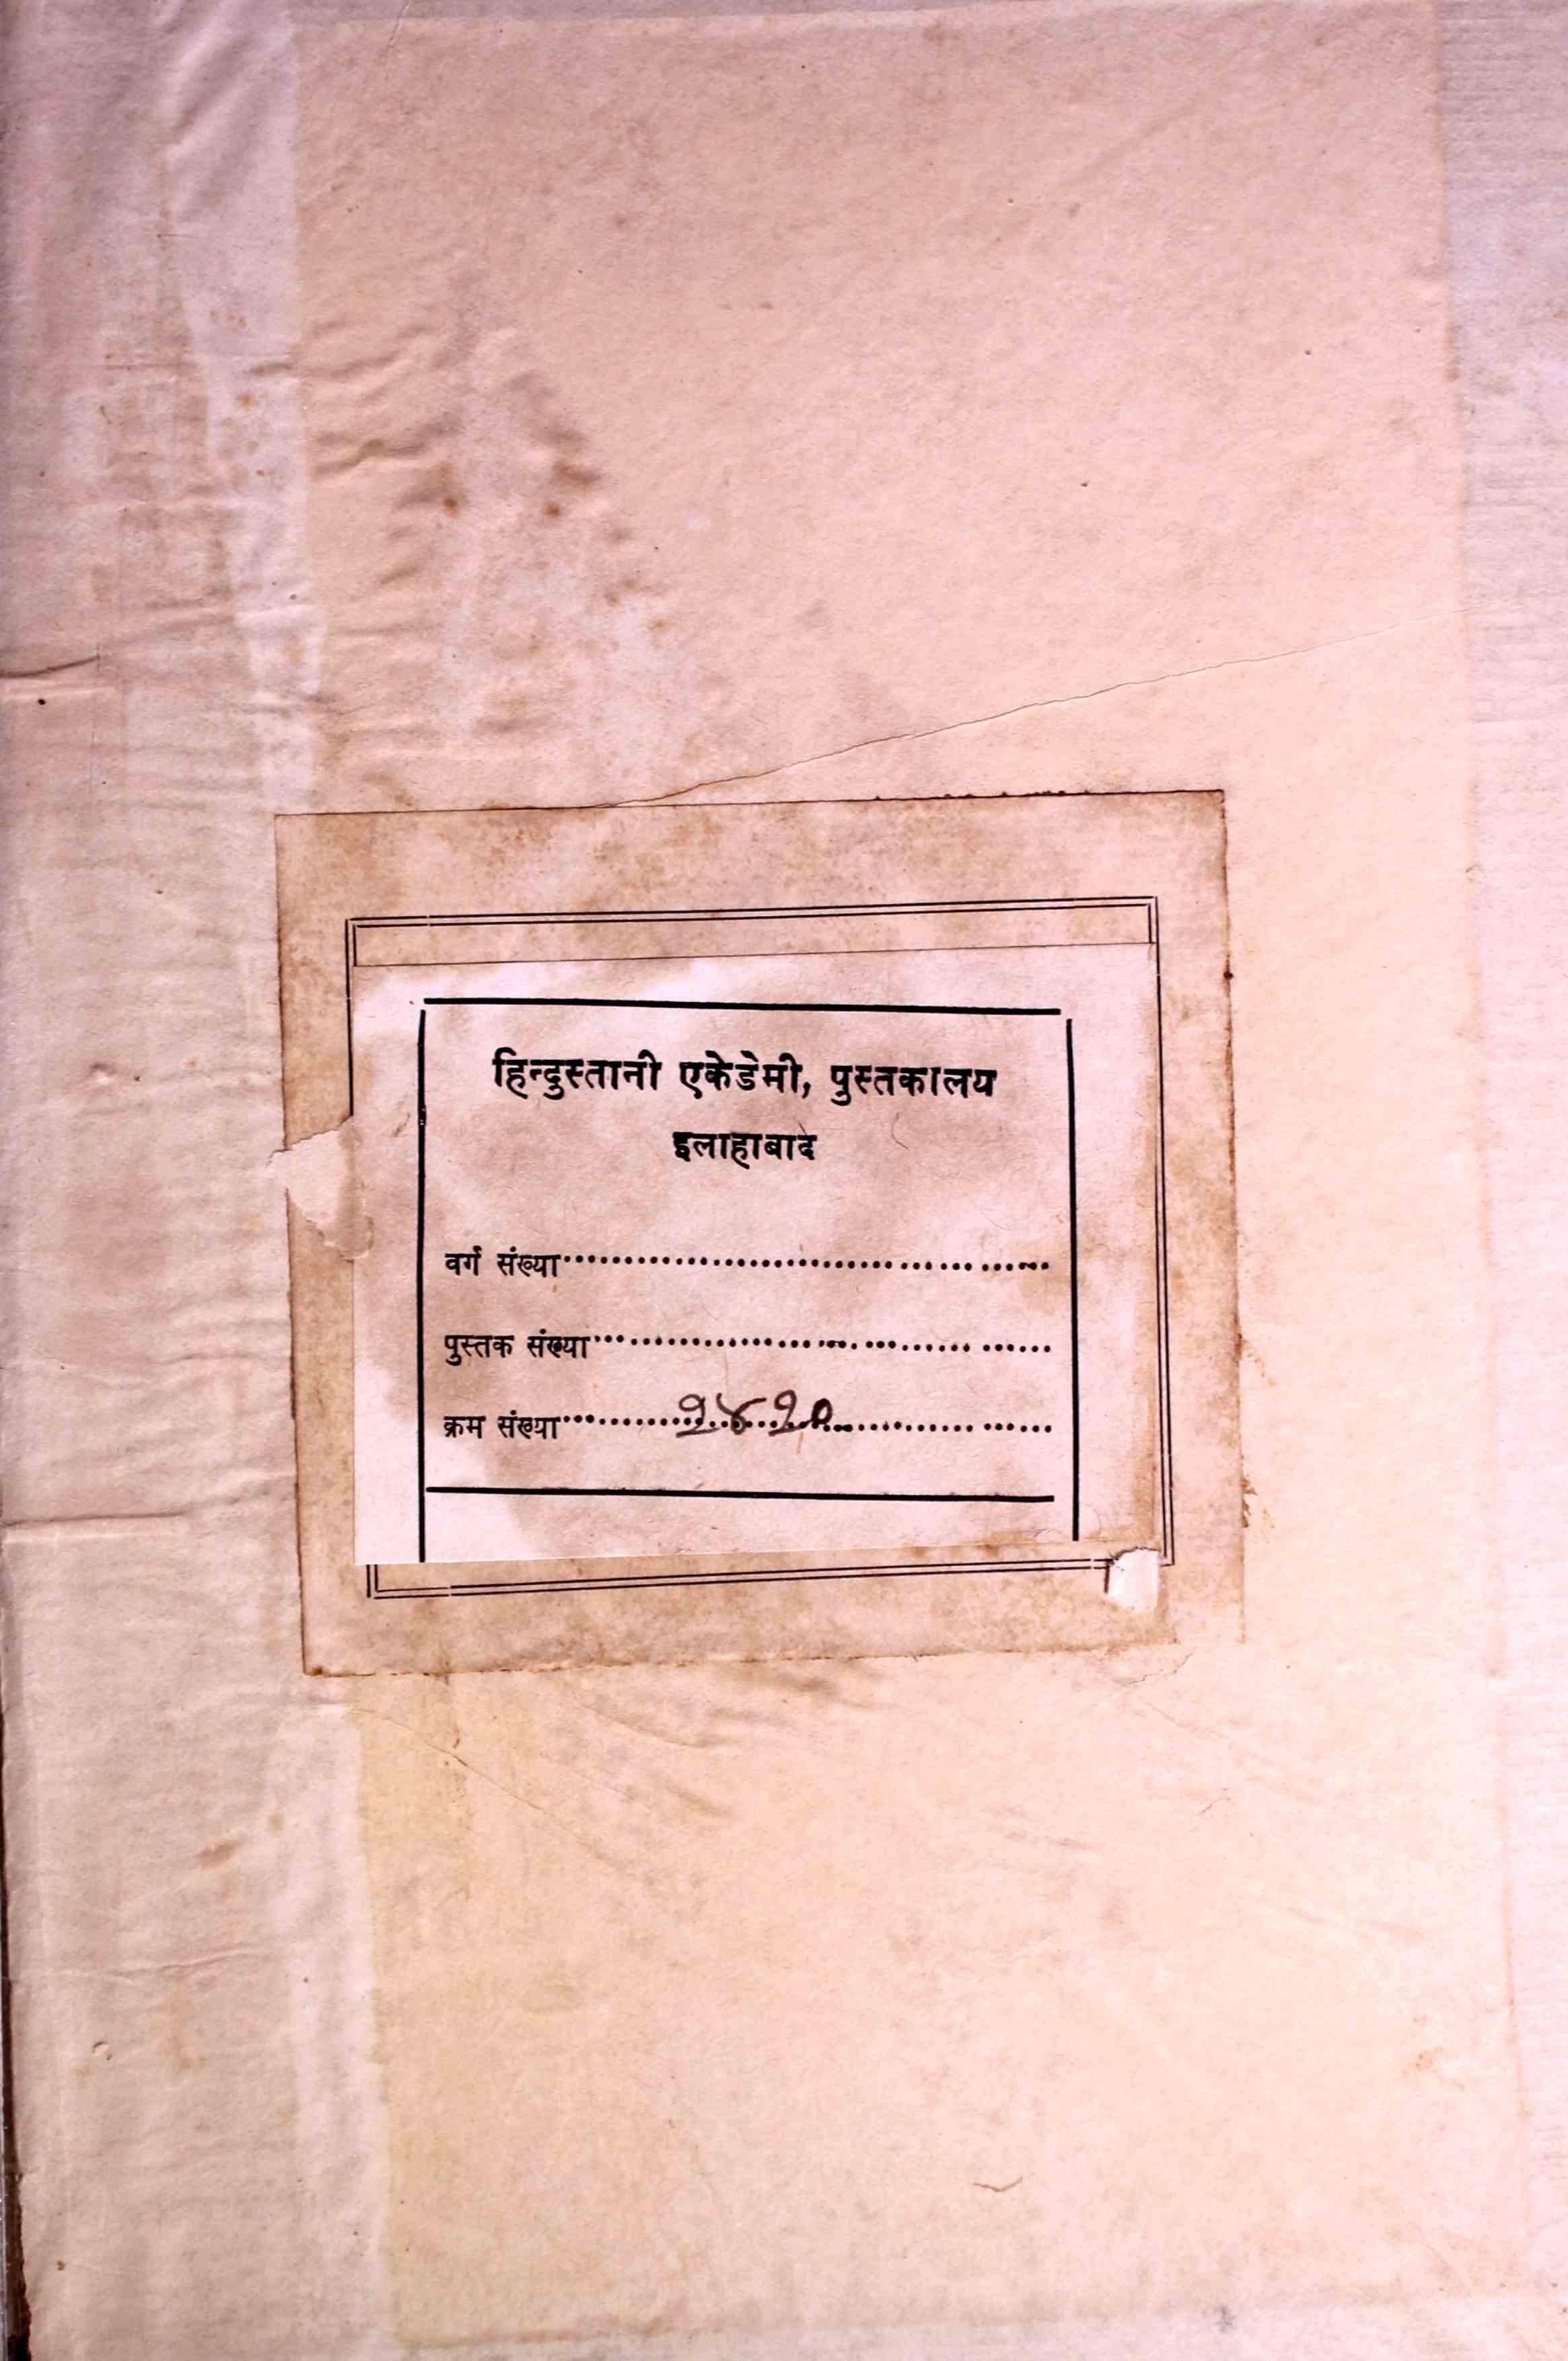 हिन्दुस्तानी एकेडेमी, पुस्तकालय
इलाहाबाद
वर्ग संख्या
पुस्तक संख्या
क्रम संख्या